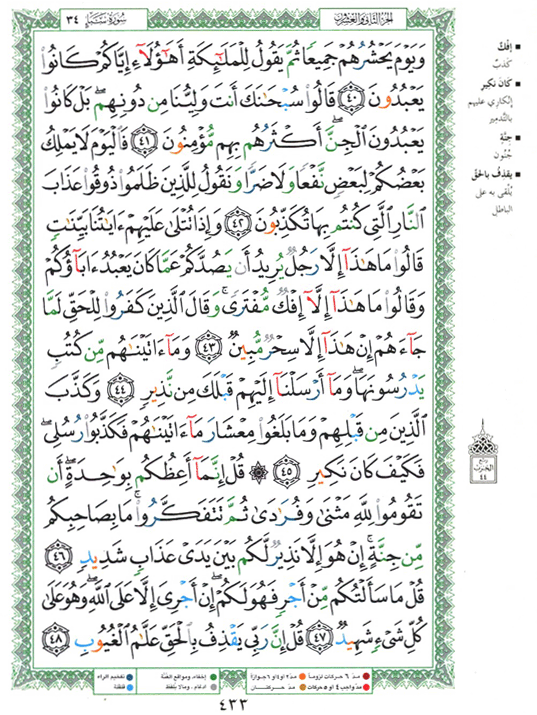 سُورَةُ سَبَإٍ ٣٤
الجزء الثاني والعشرون
وَيَوْمَ يَحْشُرُهُمْ جَمِيعًا ثُمَّ يَقُولُ لِلْمَلَٰٓئِكَةِ أَهَٰٓؤُلَآءِ إِيَّاكُمْ كَانُوا۟
يَعْبُدُونَ ٤٠ قَالُوا۟ سُبْحَٰنَكَ أَنتَ وَلِيُّنَا مِن دُونِهِم ۖ بَلْ كَانُوا۟
يَعْبُدُونَ ٱلْجِنَّ ۖ أَكْثَرُهُم بِهِم مُّؤْمِنُونَ ٤١ فَٱلْيَوْمَ لَا يَمْلِكُ
بَعْضُكُمْ لِبَعْضٍ نَّفْعًا وَلَا ضَرًّا وَنَقُولُ لِلَّذِينَ ظَلَمُوا۟ ذُوقُوا۟ عَذَابَ
ٱلنَّارِ ٱلَّتِى كُنتُم بِهَا تُكَذِّبُونَ ٤٢ وَإِذَا تُتْلَىٰ عَلَيْهِمْ ءَايَٰتُنَا بَيِّنَٰتٍ
قَالُوا۟ مَا هَٰذَآ إِلَّا رَجُلٌ يُرِيدُ أَن يَصُدَّكُمْ عَمَّا كَانَ يَعْبُدُ ءَابَآؤُكُمْ
وَقَالُوا۟ مَا هَٰذَآ إِلَّآ إِفْكٌ مُّفْتَرًى ۚ وَقَالَ ٱلَّذِينَ كَفَرُوا۟ لِلْحَقِّ لَمَّا
جَآءَهُمْ إِنْ هَٰذَآ إِلَّا سِحْرٌ مُّبِينٌ ٤٣ وَمَآ ءَاتَيْنَٰهُم مِّن كُتُبٍ
يَدْرُسُونَهَا ۖ وَمَآ أَرْسَلْنَآ إِلَيْهِمْ قَبْلَكَ مِن نَّذِيرٍ ٤٤ وَكَذَّبَ
ٱلَّذِينَ مِن قَبْلِهِمْ وَمَا بَلَغُوا۟ مِعْشَارَ مَآ ءَاتَيْنَٰهُمْ فَكَذَّبُوا۟ رُسُلِى ۖ
فَكَيْفَ كَانَ نَكِيرِ ٤٥ ۞ قُلْ إِنَّمَآ أَعِظُكُم بِوَٰحِدَةٍ ۖ أَن
تَقُومُوا۟ لِلَّهِ مَثْنَىٰ وَفُرَٰدَىٰ ثُمَّ تَتَفَكَّرُوا۟ ۚ مَا بِصَاحِبِكُم
مِّن جِنَّةٍ ۚ إِنْ هُوَ إِلَّا نَذِيرٌ لَّكُم بَيْنَ يَدَىْ عَذَابٍ شَدِيدٍ ٤٦
قُلْ مَا سَأَلْتُكُم مِّنْ أَجْرٍ فَهُوَ لَكُمْ ۖ إِنْ أَجْرِىَ إِلَّا عَلَى ٱللَّهِ ۖ وَهُوَ عَلَىٰ
كُلِّ شَىْءٍ شَهِيدٌ ٤٧ قُلْ إِنَّ رَبِّى يَقْذِفُ بِٱلْحَقِّ عَلَّٰمُ ٱلْغُيُوبِ ٤٨
إِفْكٌ
كَذِبٌ
كَانَ نَكِيرِ
إنكاري عليهم
بالتدمير
جِنَّةٍ
جُنُون
يقذف بالحق
يُلقي به على
الباطل
الحزب
٤٤
مدّ ٦ حركات لزوماً
مدّ ٢ أو ٤ أو ٦ جوازاً
إخفاء، ومواقع الغنّة
تفخيم الراء
مدّ واجب ٤ أو ٥ حركات
مدّ حركتان
ادغام، وما لا يُلفظ
قلقلة
٤٣٣